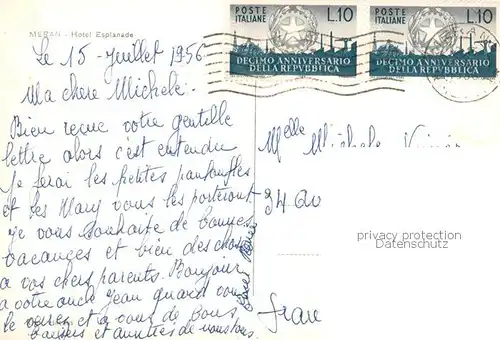 MERAN - Hotel Esplanade
POSTE ITALIANE L.10
DECIMO ANNIVERSARIO DELLA REPVBBLICA
POSTE ITALIANE L.10
DECIMO ANNIVERSARIO DELLA REPVBBLICA
Le 15 - Juillet 1956
Ma chere Michele.
Bien reçue votre gentille
lettre alors c'est entendu
je ferai les petites panfoufles
et les Mary vous les porteront
je vous souhaite de bonnes
vacances et bien des choses
a vos chers parents. Bonjour
a votre oncle Jean quand vous
le verez et a vous de bons
baisers et amitiés de nous tous.
Melle Michele
privacy protection
Datenschutz